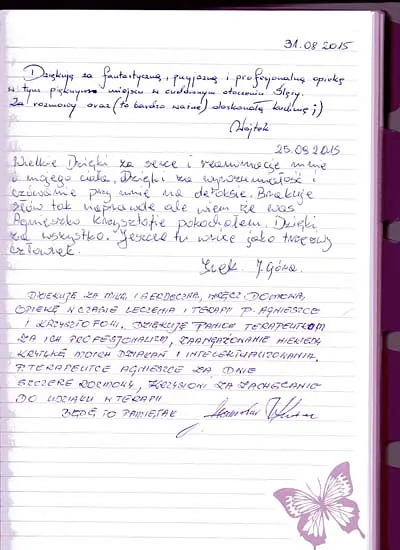 31.08 2015
Dziękuję za fantastyczną, przyjazną i profesjonalną opiekę
w tym pięknym miejscu w cudownym otoczeniu Ślęży.
Za rozmowy oraz (to bardzo ważne) doskonałą kuchnię ;)
Wojtek
25.08.2015
Wielkie Dzięki za serce i reanimację mnie
i mojego ciała. Dzięki za wyrozumiałość i
czuwanie przy mnie na detoksie. Brakuje
słów tak naprawdę ale wiem że was
Agnieszko Krzysztofie pokochałem. Dzięki
za wszystko. Jeszcze tu wrócę jako trzeźwy
człowiek.
J. Góra.
DZIĘKUJĘ ZA MIŁĄ I SERDECZNĄ, WRĘCZ DOMOWĄ,
OPIEKĘ W CZASIE LECZENIA I TERAPII P. AGNIESZCE
I KRZYSZTOFOWI, DZIĘKUJĘ PANIOM TERAPEUTKOM
ZA ICH PROFESJONALIZM, ZAANGAŻOWANIE
KRYTYKĘ MOICH DZIAŁAŃ I INTELEKTUALIZOWANIA.
P. TERAPEUTCE AGNIESZCE ZA DWIE
SZCZERE ROZMOWY, ZA ZACHĘCANIE
DO UDZIAŁU W TERAPII
BĘDĘ TO PAMIĘTAŁ